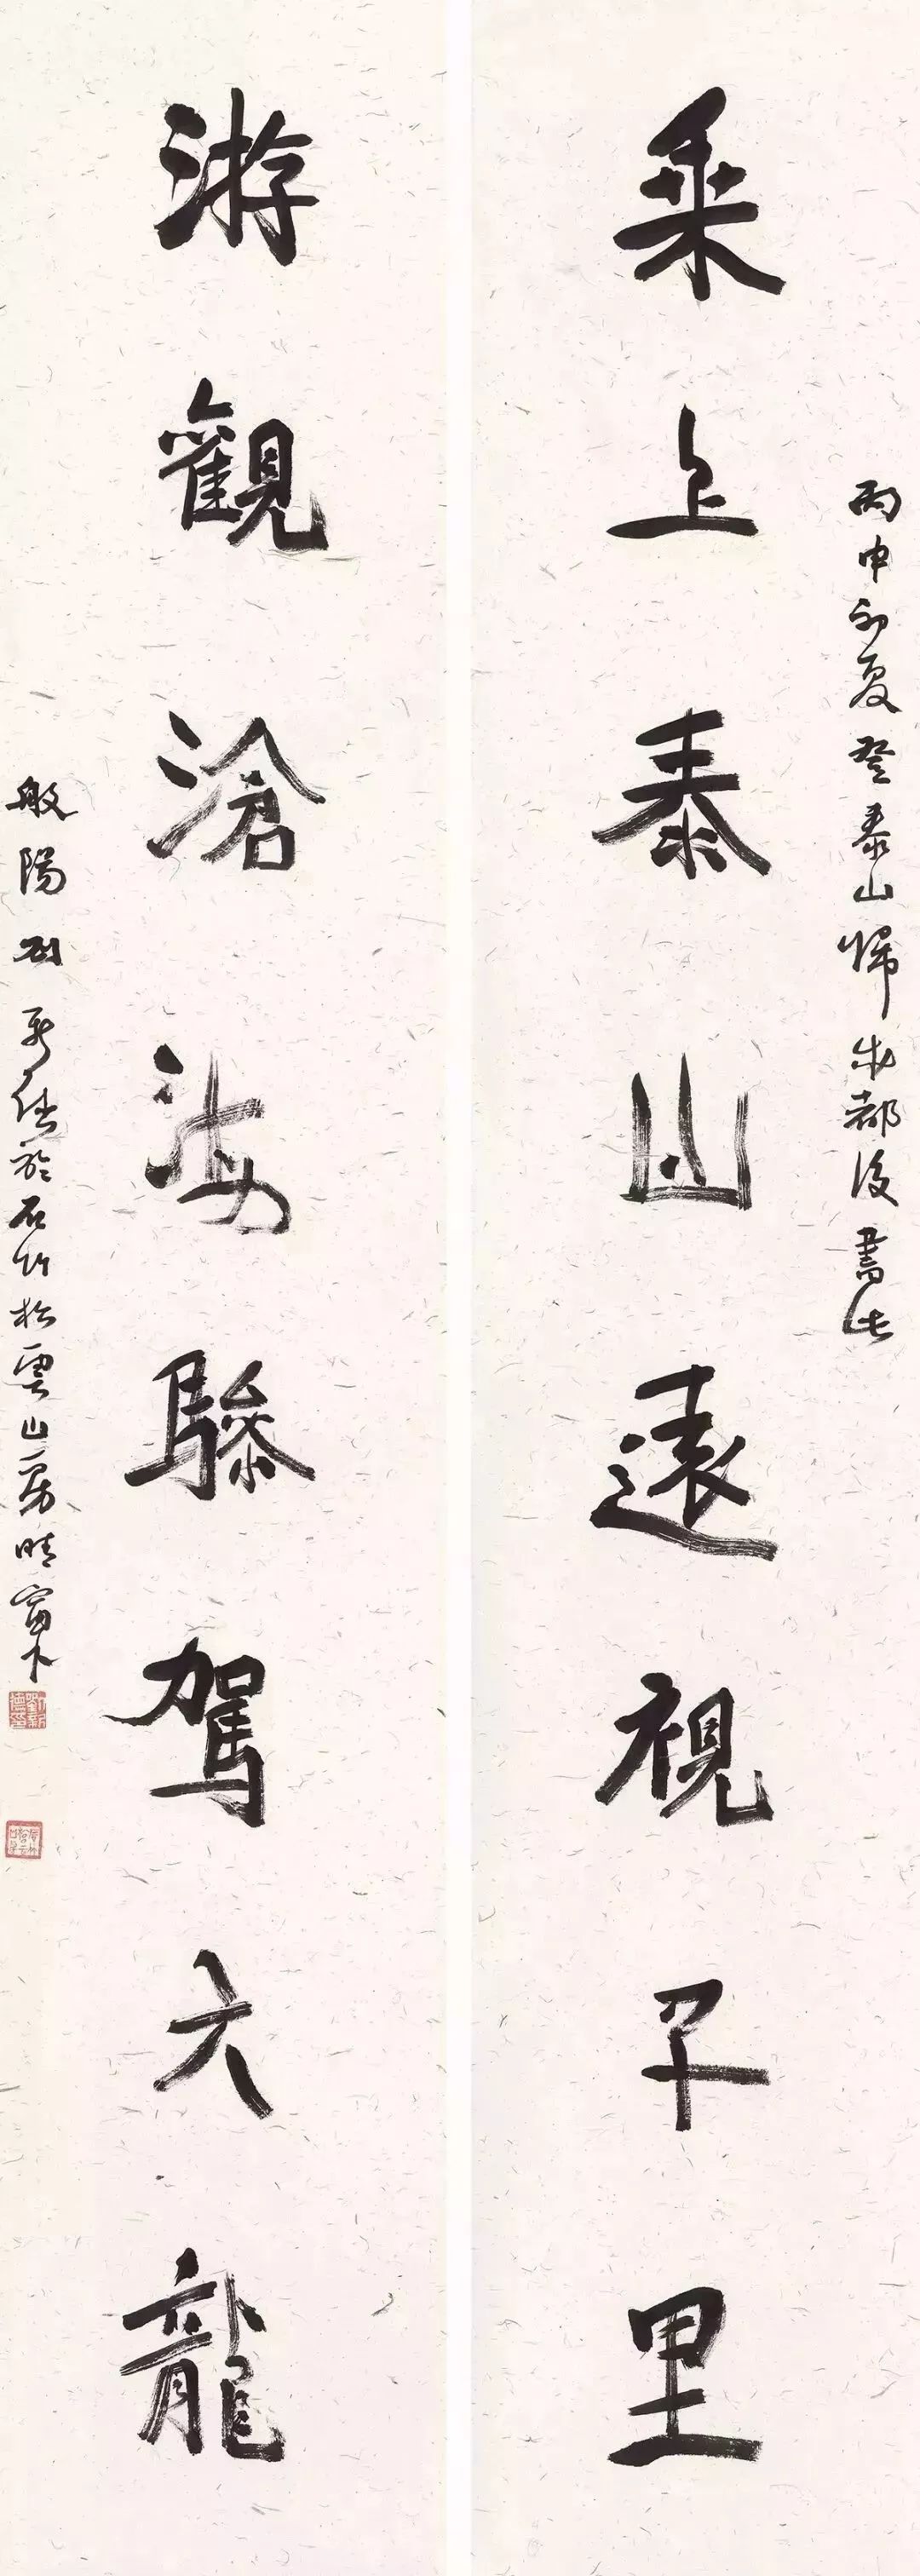 丙申初夏登泰山歸成都後書此
乘上泰山遠視千里
游觀滄海驂駕六龍
般陽劉新德於石竹松雲山房晴窗下
劉新德印